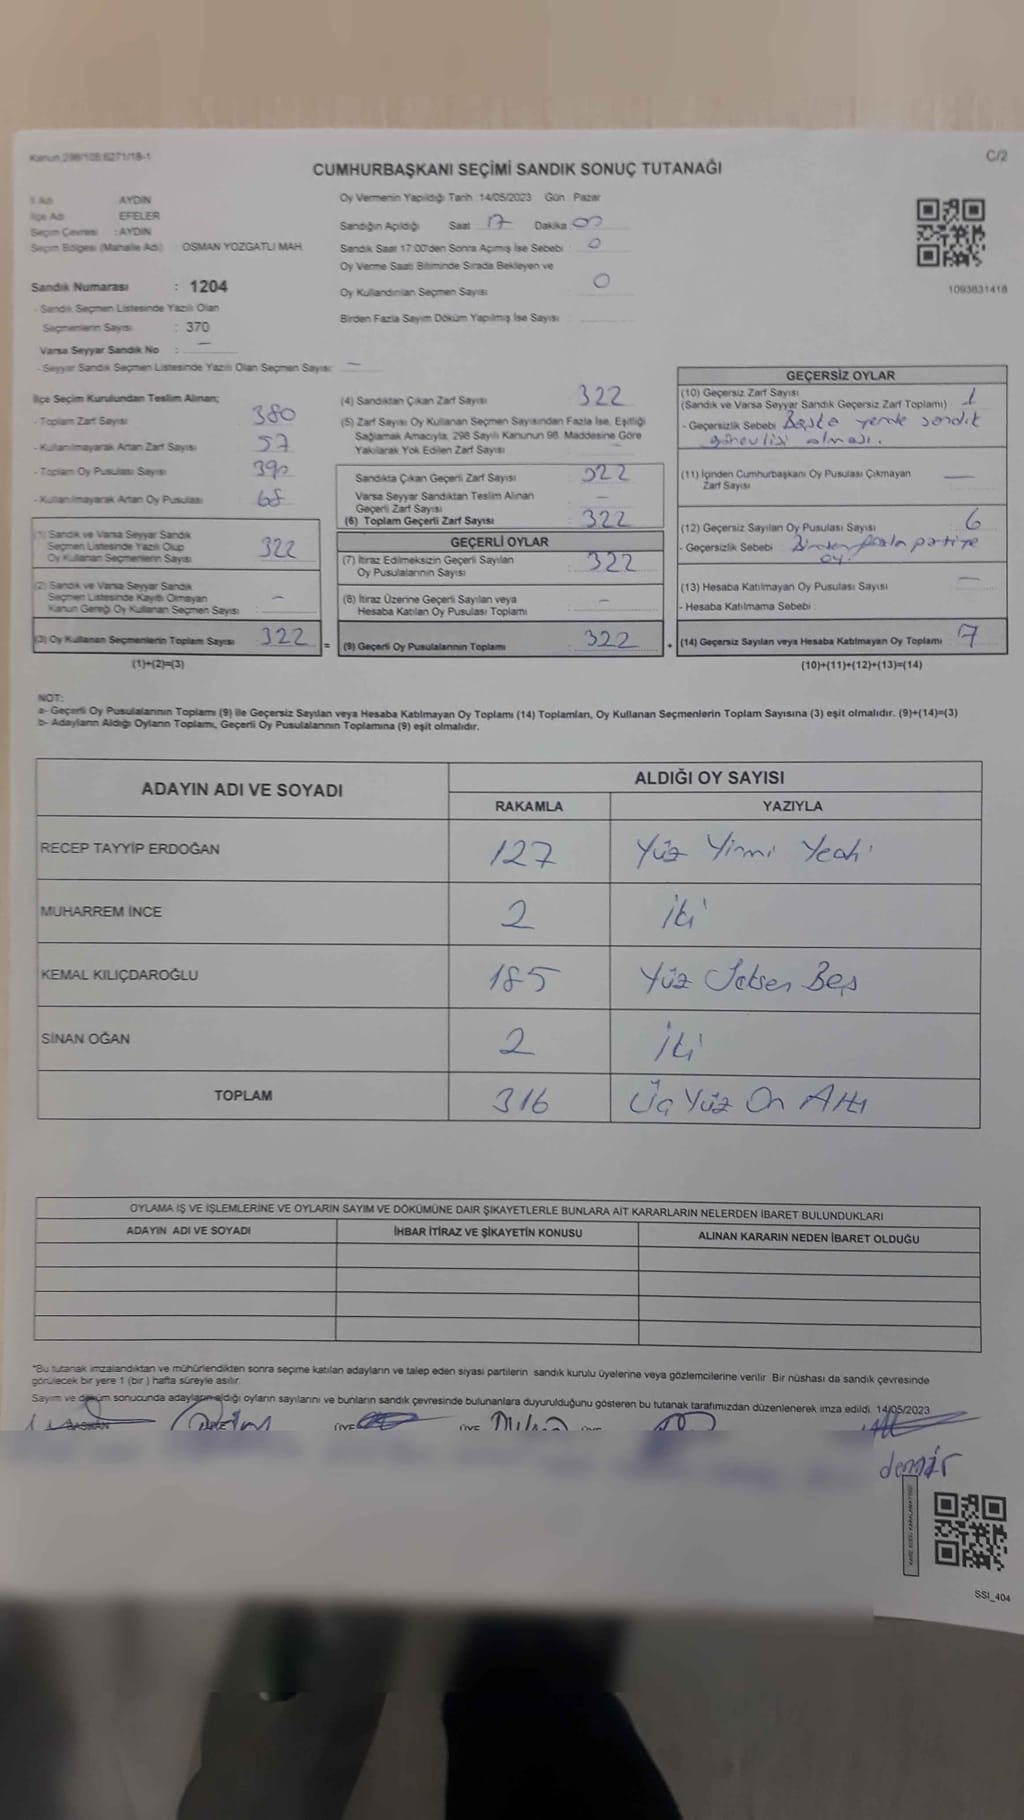 Kanun 298/105 6271/18-1
C/2
CUMHURBAŞKANI SEÇİMİ SANDIK SONUÇ TUTANAĞI
İl Adı AYDIN
İlçe Adı EFELER
Seçim Çevresi : AYDIN
Seçim Bölgesi (Mahalle Adı) OSMAN YOZGATLI MAH.
Sandık Numarası : 1204
- Sandık Seçmen Listesinde Yazılı Olan
Seçmenlerin Sayısı : 370
Varsa Seyyar Sandık No : —
- Seyyar Sandık Seçmen Listesinde Yazılı Olan Seçmen Sayısı: —
Oy Vermenin Yapıldığı Tarih 14/05/2023 Gün Pazar
Sandığın Açıldığı Saat 17 Dakika 00
Sandık Saat 17:00'den Sonra Açımış İse Sebebi : 0
Oy Verme Saati Bitiminde Sırada Bekleyen ve
Oy Kullandırılan Seçmen Sayısı 0
Birden Fazla Sayım Döküm Yapılmış İse Sayısı :
1093831418
İlçe Seçim Kurulundan Teslim Alınan;
- Toplam Zarf Sayısı 380
- Kullanılmayarak Artan Zarf Sayısı 57
- Toplam Oy Pusulası Sayısı 390
- Kullanılmayarak Artan Oy Pusulası 68
(1) Sandık ve Varsa Seyyar Sandık
Seçmen Listesinde Yazılı Olup
Oy Kullanan Seçmenlerin Sayısı 322
(2) Sandık ve Varsa Seyyar Sandık
Seçmen Listesinde Kayıtlı Olmayan
Kanun Gereği Oy Kullanan Seçmen Sayısı : –
(3) Oy Kullanan Seçmenlerin Toplam Sayısı 322 =
(1)+(2)=(3)
(4) Sandıktan Çıkan Zarf Sayısı 322
(5) Zarf Sayısı Oy Kullanan Seçmen Sayısından Fazla İse, Eşitliği
Sağlamak Amacıyla, 298 Sayılı Kanunun 98. Maddesine Göre
Yakılarak Yok Edilen Zarf Sayısı –
Sandıkta Çıkan Geçerli Zarf Sayısı 322
Varsa Seyyar Sandıktan Teslim Alınan
Geçerli Zarf Sayısı –
(6) Toplam Geçerli Zarf Sayısı 322
GEÇERLİ OYLAR
(7) İtiraz Edilmeksizin Geçerli Sayılan
Oy Pusulalarının Sayısı 322
(8) İtiraz Üzerine Geçerli Sayılan veya
Hesaba Katılan Oy Pusulası Toplamı –
(9) Geçerli Oy Pusulalarının Toplamı 322 +
GEÇERSİZ OYLAR
(10) Geçersiz Zarf Sayısı
(Sandık ve Varsa Seyyar Sandık Geçersiz Zarf Toplamı) 1
- Geçersizlik Sebebi Başka yerde sandık
görevlisi olması.
(11) İçinden Cumhurbaşkanı Oy Pusulası Çıkmayan
Zarf Sayısı —
(12) Geçersiz Sayılan Oy Pusulası Sayısı 6
- Geçersizlik Sebebi Birden fazla partiye
oy.
(13) Hesaba Katılmayan Oy Pusulası Sayısı —
- Hesaba Katılmama Sebebi :
(14) Geçersiz Sayılan veya Hesaba Katılmayan Oy Toplamı 7
(10)+(11)+(12)+(13)=(14)
NOT:
a- Geçerli Oy Pusulalarının Toplamı (9) ile Geçersiz Sayılan veya Hesaba Katılmayan Oy Toplamı (14) Toplamları, Oy Kullanan Seçmenlerin Toplam Sayısına (3) eşit olmalıdır. (9)+(14)=(3)
b- Adayların Aldığı Oyların Toplamı, Geçerli Oy Pusulalarının Toplamına (9) eşit olmalıdır.
ADAYIN ADI VE SOYADI ALDIĞI OY SAYISI
RAKAMLA YAZIYLA
RECEP TAYYİP ERDOĞAN 127 Yüz Yirmi Yedi
MUHARREM İNCE 2 İki
KEMAL KILIÇDAROĞLU 185 Yüz Seksen Beş
SİNAN OĞAN 2 İki
TOPLAM 316 Üç Yüz On Altı
OYLAMA İŞ VE İŞLEMLERİNE VE OYLARIN SAYIM VE DÖKÜMÜNE DAİR ŞİKAYETLERLE BUNLARA AİT KARARLARIN NELERDEN İBARET BULUNDUKLARI
ADAYIN ADI VE SOYADI İHBAR İTİRAZ VE ŞİKAYETİN KONUSU ALINAN KARARIN NEDEN İBARET OLDUĞU
*Bu tutanak imzalandıktan ve mühürlendikten sonra seçime katılan adayların ve talep eden siyasi partilerin sandık kurulu üyelerine veya gözlemcilerine verilir. Bir nüshası da sandık çevresinde
görülecek bir yere 1 (bir ) hafta süreyle asılır.
Sayım ve döküm sonucunda adayların aldığı oyların sayılarını ve bunların sandık çevresinde bulunanlara duyurulduğunu gösteren bu tutanak tarafımızdan düzenlenerek imza edildi. 14/05/2023
BAŞKAN ÜYE ÜYE ÜYE
demir
SSI_404